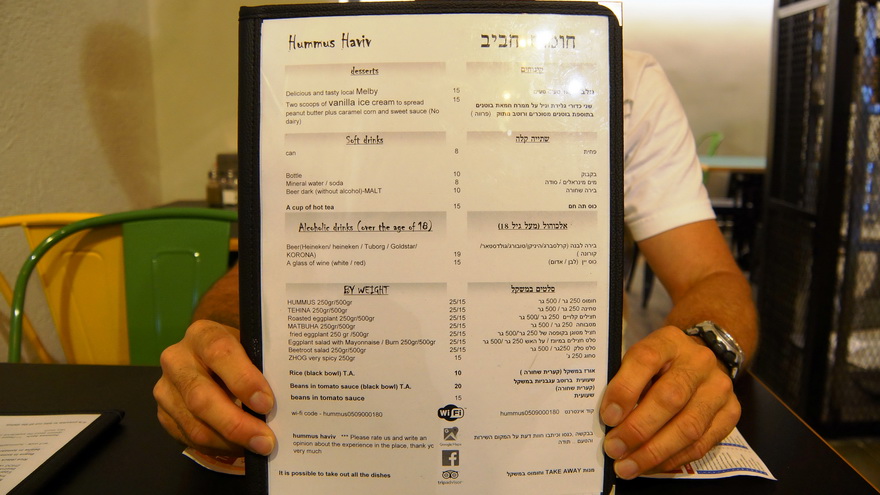 Hummus Haviv
desserts
Delicious and tasty local Melby 15
Two scoops of vanilla ice cream to spread 15
peanut butter plus caramel corn and sweet sauce (No
dairy)
Soft drinks
can 8
Bottle 10
Mineral water / soda 8
Beer dark (without alcohol)-MALT 10
A cup of hot tea 15
Alcoholic drinks (over the age of 18)
Beer(Heineken/ heineken / Tuborg / Goldstar/
KORONA) 19
A glass of wine (white / red) 15
BY WEIGHT
HUMMUS 250gr/500gr 25/15
TEHINA 250gr/500gr 25/15
Roasted eggplant 250gr/500gr 25/15
MATBUHA 250gr/500gr 25/15
fried eggplant 250 gr /500gr 25/15
Eggplant salad with Mayonnaise / Burn 250gr/500gr 25/15
Beetroot salad 250gr/500gr 25/15
ZHOG very spicy 250gr 15
Rice (black bowl) T.A. 10
Beans in tomato sauce (black bowl) T.A. 20
beans in tomato sauce 15
wi-fi code - hummus0509000180
hummus haviv *** Please rate us and write an
opinion about the experience in the place, thank yo
very much
It is possible to take out all the dishes
WiFi
tripadvisor
חביב
שני כדורי גלידת וניל על ממרח חמאת בוטנים
בתוספת בוטנים מסוכרים ורוטב מתוק (פרווה)
שתייה קלה
פחית
בקבוק
מים מינראליים / סודה
בירה שחורה
כוס תה חם
אלכוהול (מעל גיל 18)
בירה לבנה (קרלסברג/היניקן/טובורג/גולדסטאר/
קורונה )
כוס יין (לבן / אדום)
סלטים במשקל
חומוס 250 גר / 500 גר
טחינה 250 גר / 500 גר
חצילים קלויים 250 גר /500 גר
מטבוחה 250 גר / 500 גר
סלט חצילים במיונז / על האש 250 גר /500 גר
סלט סלק 250גר / 500 גר
סחוג 250 ג'
אורז במשקל (קערית שחורה )
שעועית ברוטב עגבניות במשקל
(קערית שחורה)
שעועית
קוד אינטרנט hummus0509000180
מנות TAKE AWAY וחומוס במשקל